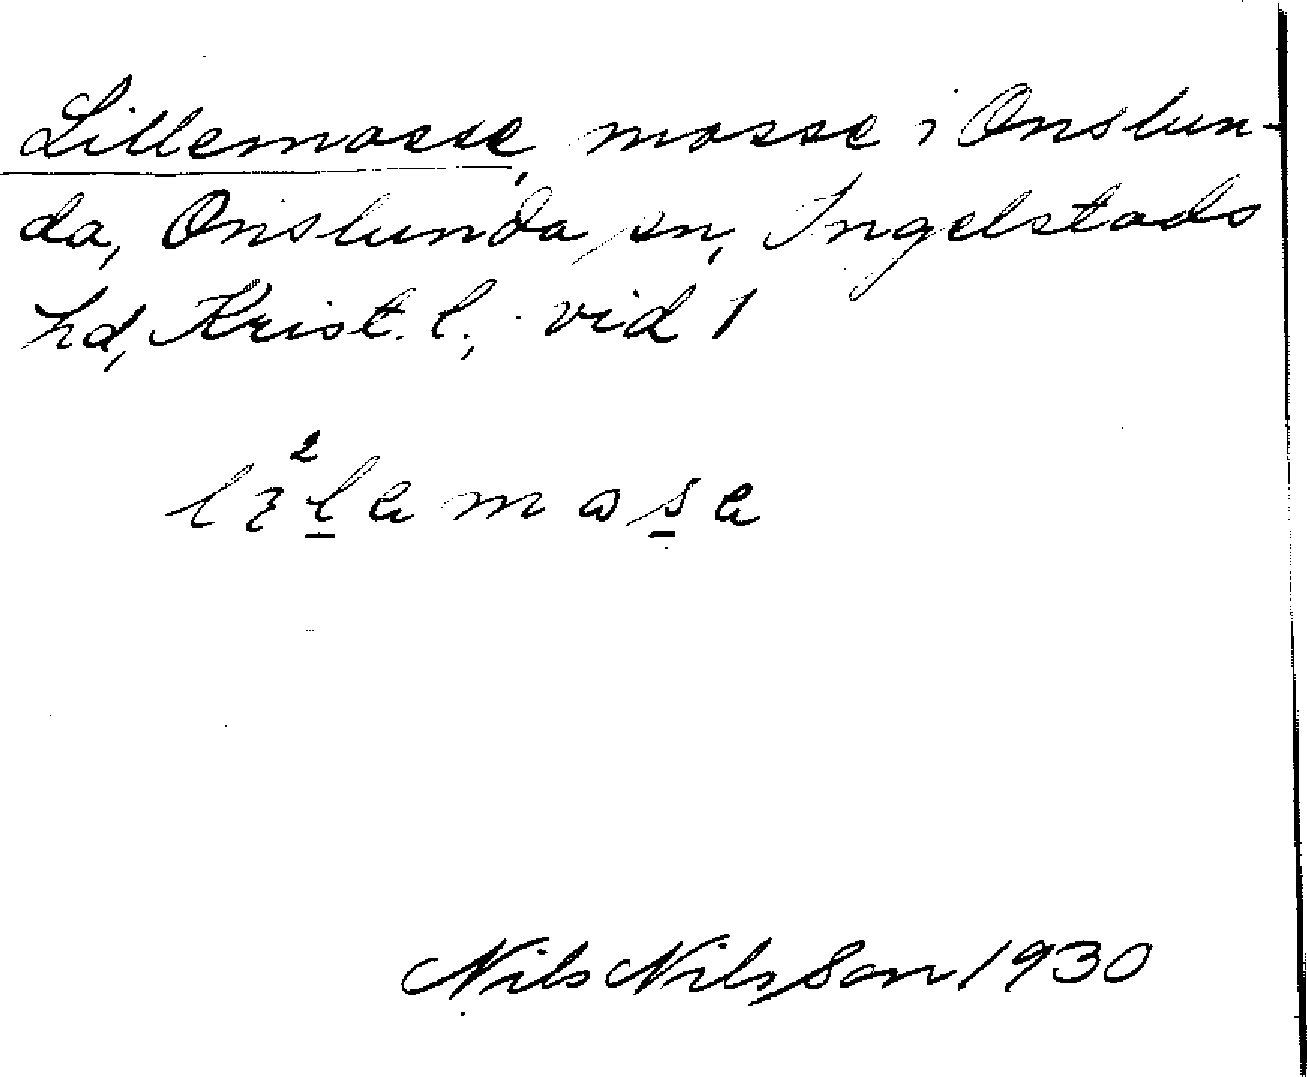 Lillemosse, mosse i Onslun-
da, Onslunda sn, Ingelstads
hd, Krist. l., vid 1
Nils Nilsson 1930